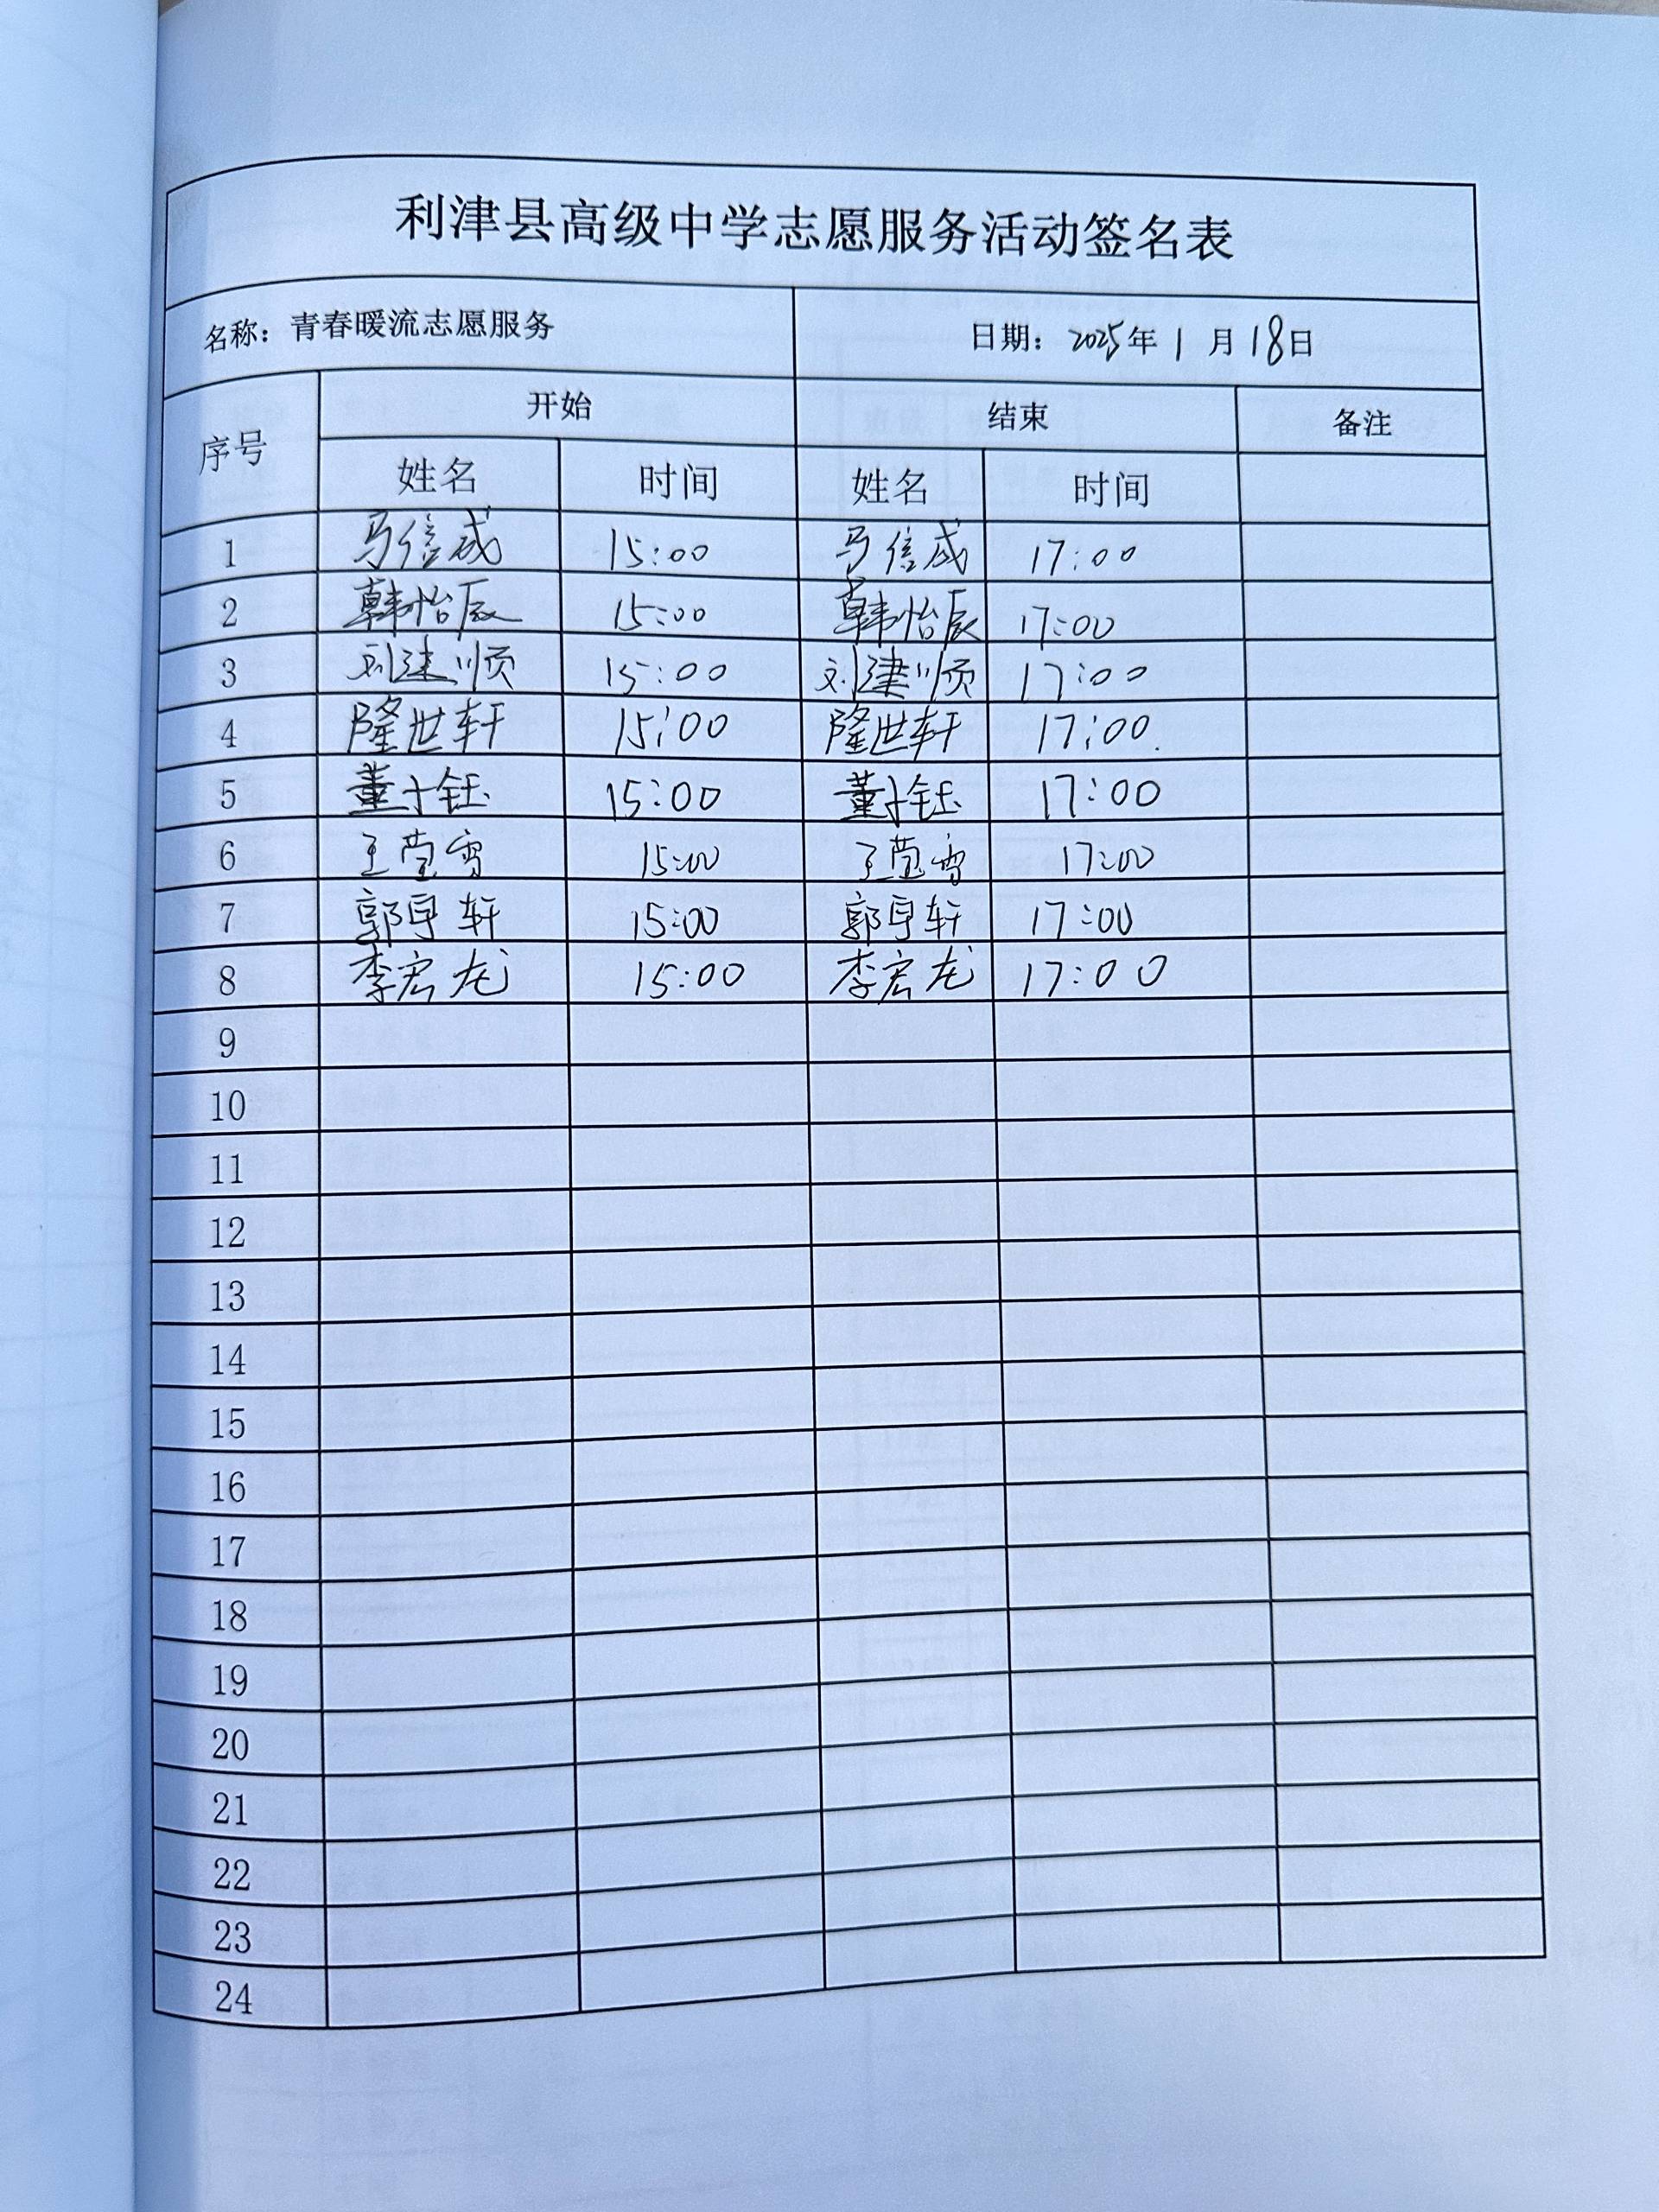 利津县高级中学志愿服务活动签名表
名称：青春暖流志愿服务 日期：2025年1月18日
序号 开始 结束 备注
姓名 时间 姓名 时间
1 马信成 15:00 马信成 17:00
2 韩怡辰 15:00 韩怡辰 17:00
3 刘建顺 15:00 刘建顺 17:00
4 隆世轩 15:00 隆世轩 17:00
5 董子钰 15:00 董子钰 17:00
6 王莹雪 15:00 王莹雪 17:00
7 郭宇轩 15:00 郭宇轩 17:00
8 李宏龙 15:00 李宏龙 17:00
9
10
11
12
13
14
15
16
17
18
19
20
21
22
23
24